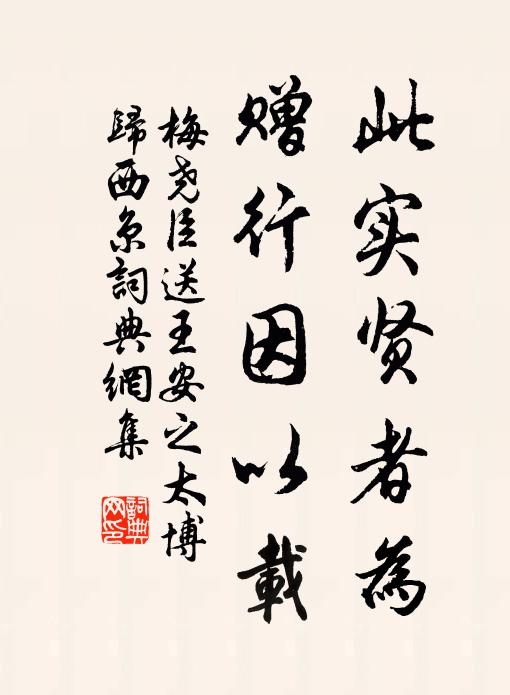 此实贤者為
赠行因以載
梅尧臣送王安之太博
歸西京詞典網集
詞典网印